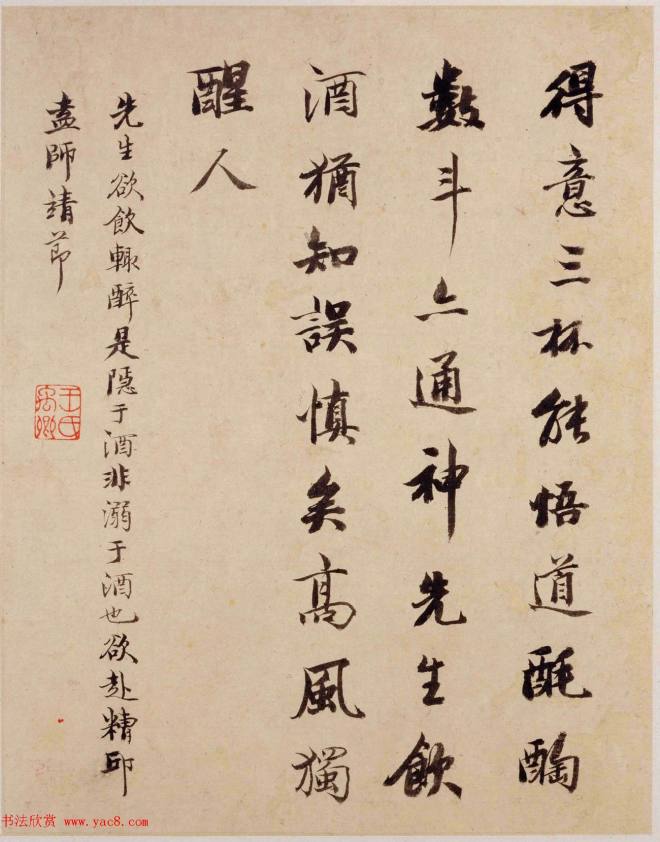 得意三杯能悟道酕醄
數斗亦通神先生飲
酒猶知誤慎矣高風獨
醒人
先生欲飲輙醉是隱于酒非溺于酒也欲赴糟邱
盍師靖節
王氏禹卿
书法欣赏 www.yac8.com